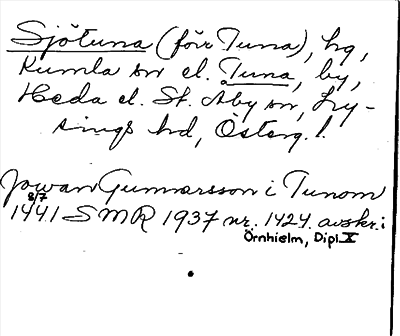 Sjötuna (förr Tuna), hg,
Kumla sn el. Tuna, by,
Heda el. St. Åby sn, Ly-
sings hd, Österg.!
Jowan Gunnarsson i Tunom
8/7
1441 SMR 1937 nr. 1424. avskr. i
Örnhielm, Dipl. X